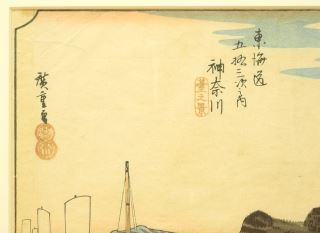 東海道
五拾三次之内
神奈川
台之景
廣重画